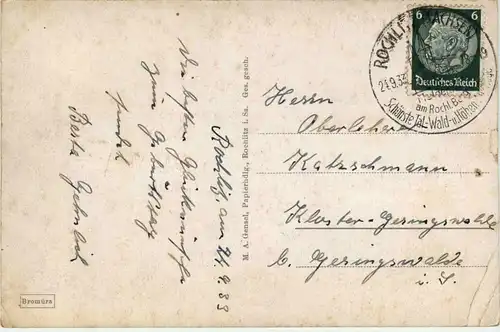 Rochlitz, am 21.9.33
Die besten Glückwünsche
zum Geburtstag
sendet
M. A. Gensel, Papierhdlg., Rochlitz i. Sa. Ges. gesch.
Bromüra
6 6
Deutsches Reich
ROCHLITZ SACHSEN
am Rochl. Berg
Schönste Tal-Wald-u.Höhen
Herrn
Oberlehrer
Katzschmann
Kloster-Geringswalde
b. Geringswalde
i. S.